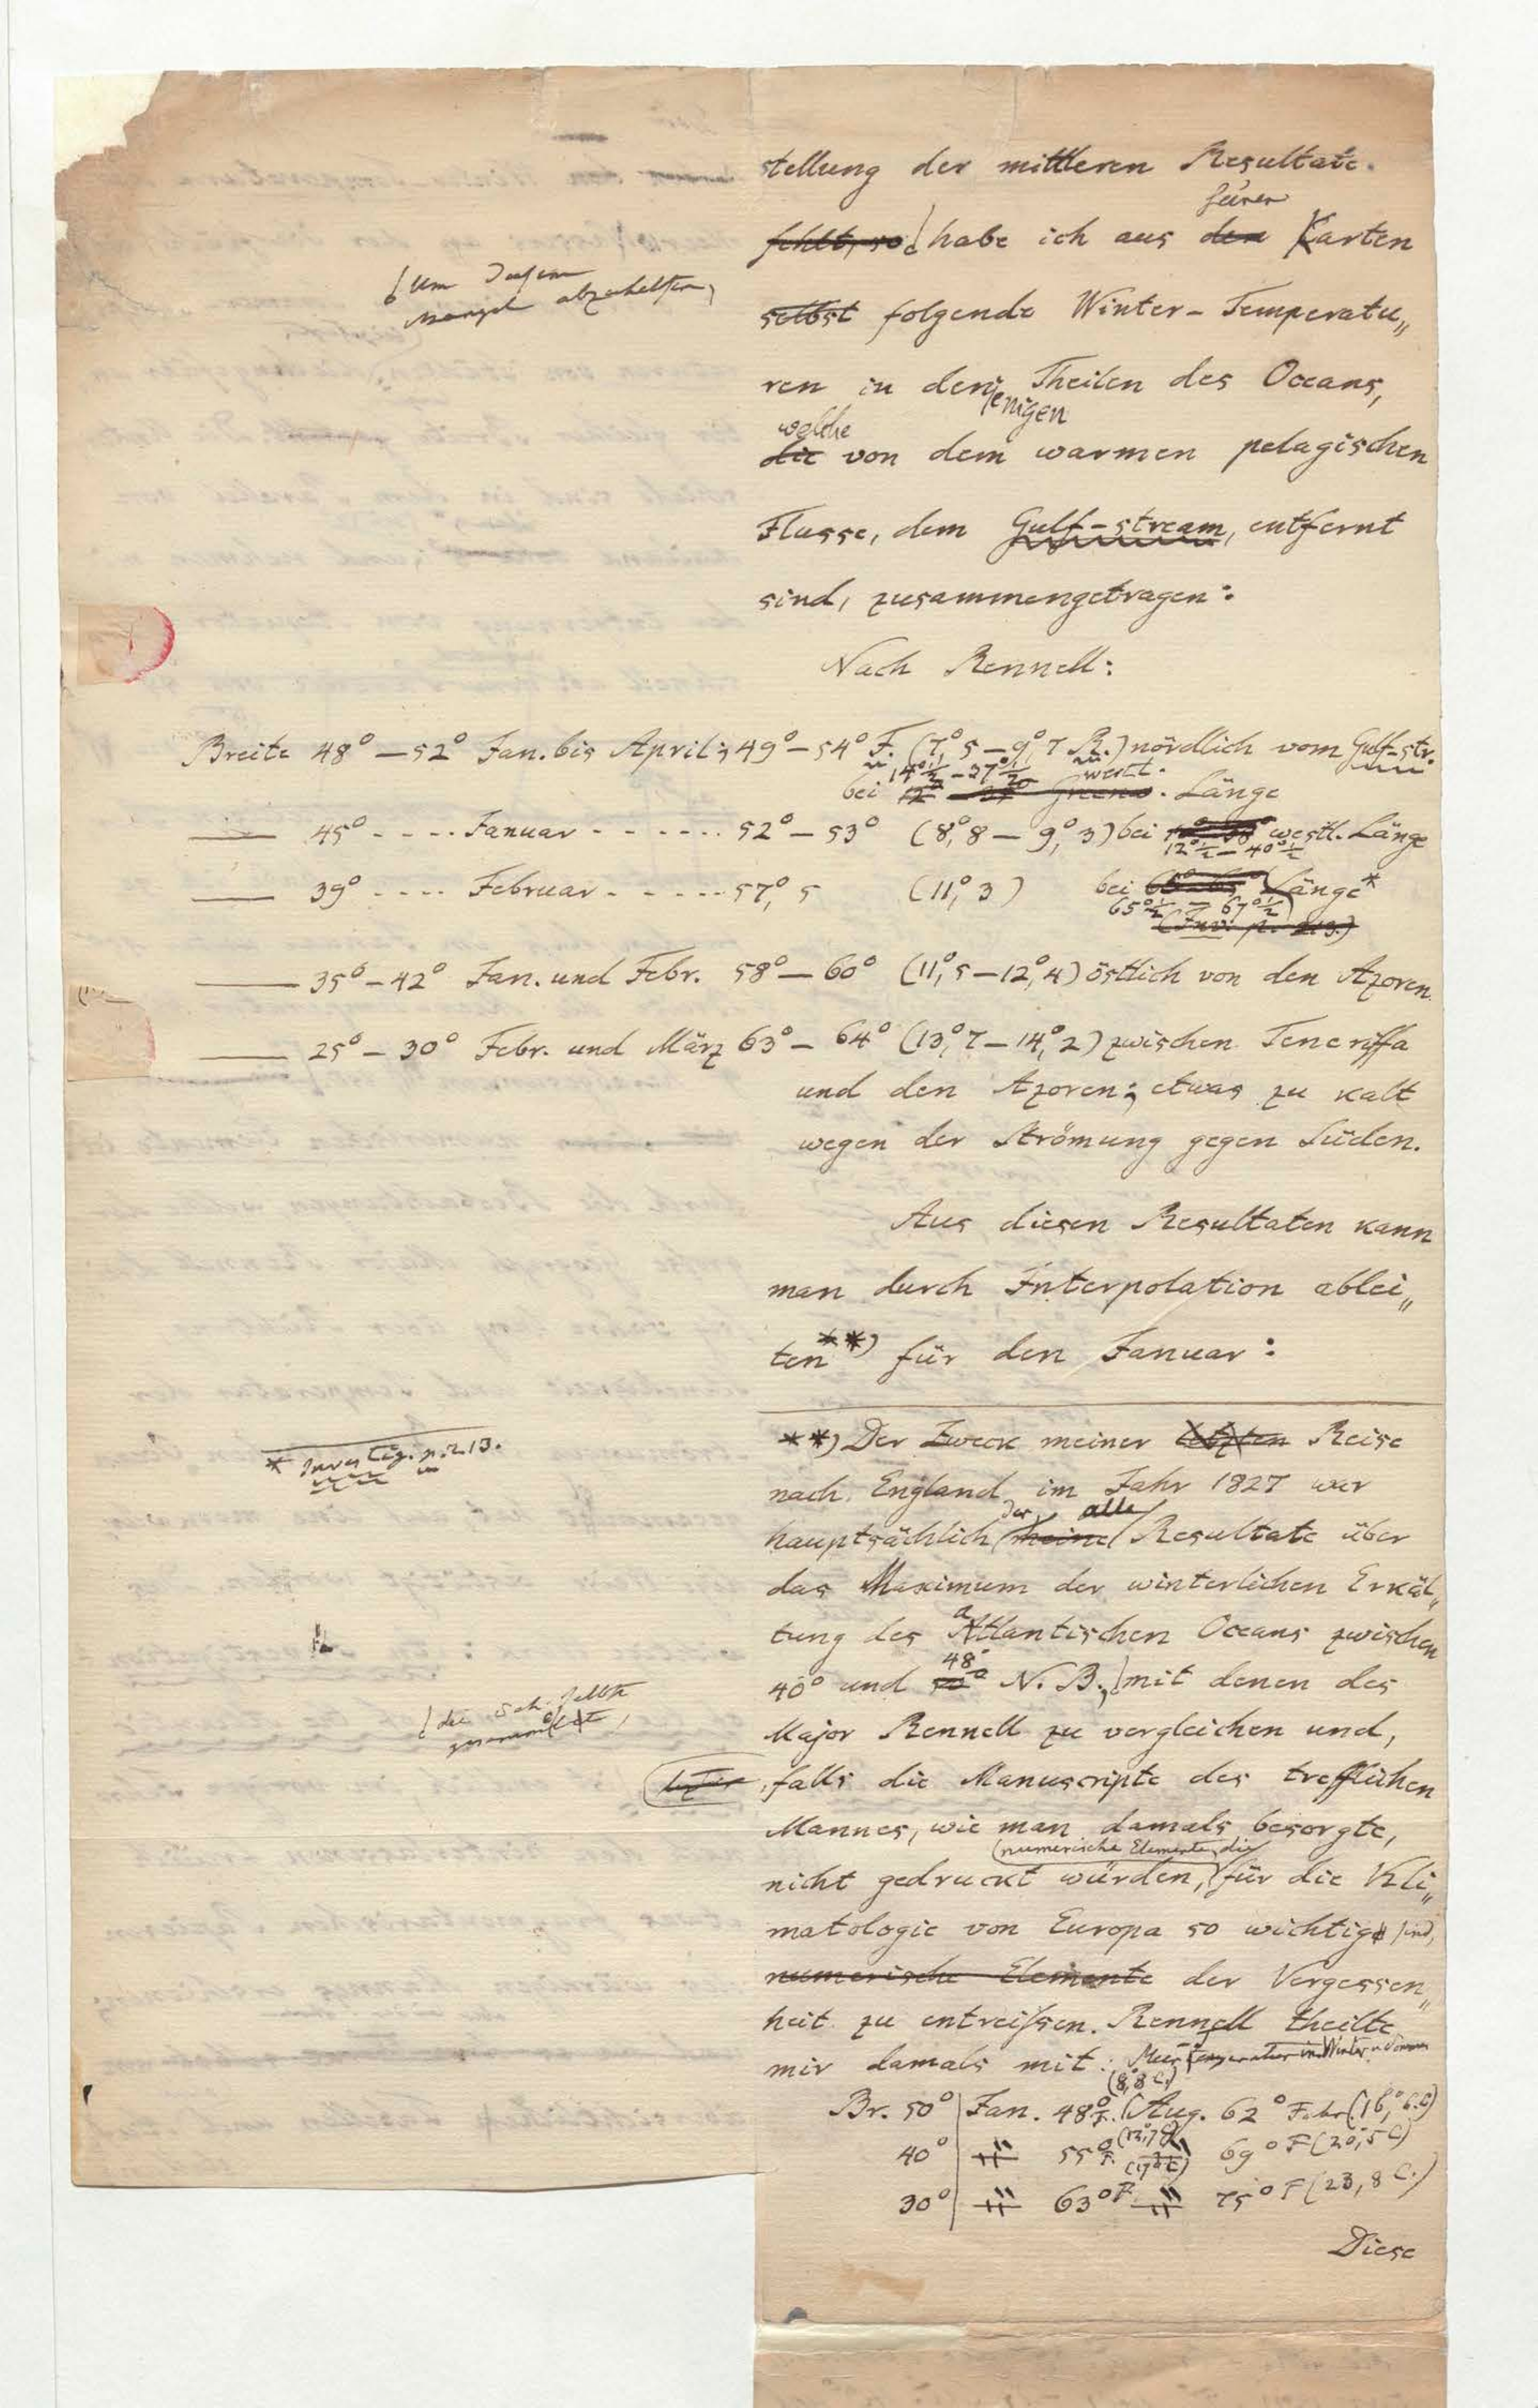 stellung der mittleren Resultate.
seiner
fehlt, so habe ich aus den Karten
Um diesem
Mangel abzuhelfen,
selbst folgende Winter-Temperatu„
ren in denjenigen Theilen des Oceans,
welche
die von dem warmen pelagischen
Flusse, dem Gulf-stream, entfernt
sind, zusammengetragen:
Nach Rennell:
Breite 48° — 52° Jan. bis April; 49° — 54° F. (7°,5 — 9°,7 R.) nördlich vom Gulf-str.
14°½ — 37°½ westl.
bei Länge
—— 45° - - - - Januar - - - - - - 52° — 53° (8°,8 — 9°,3) bei westl. Länge
12°½ — 40°½
—— 39° - - - - Februar - - - - - 57°,5 (11°,3) bei Länge*
65°½ — 67°½
(Inv. p. 213.)
—— 35° — 42° Jan. und Febr. 58° — 60° (11°,5 — 12°,4) östlich von den Azoren.
—— 25° — 30° Febr. und März 63° — 64° (13°,7 — 14°,2) zwischen Teneriffa
und den Azoren; etwas zu kalt
wegen der Strömung gegen Süden.
Aus diesen Resultaten kann
man durch Interpolation ablei„
ten**) für den Januar:
* Investig. p. 213.
**) Der Zweck meiner letzten Reise
nach England im Jahr 1827 war
der alle
hauptsächlich meine Resultate über
das Maximum der winterlichen Erkäl„
tung des atlantischen Oceans zwischen
48°
40° und N. B., mit denen des
die ich selbst
gesammelt,
Major Rennell zu vergleichen und,
falls die Manuscripte des trefflichen
Mannes, wie man damals besorgte,
numerische Elemente, die
nicht gedruckt würden, für die Kli„
matologie von Europa so wichtig sind,
numerische Elemente der Vergessen„
heit zu entreißen. Rennell theilte
mir damals mit: Meer temperatur im Winter u. Sommer
(8°,8 C.)
Br. 50° | Jan. 48° F. Aug. 62° Fahr. (16°,6 C)
(12°,7 C)
40° | " 55° F. " 69° F (20°,5 C)
(17°,2 C)
30° | " 63° F. " 75° F (23,8 C.)
Diese